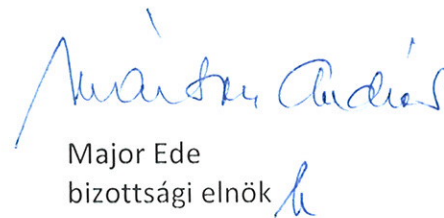 Márton András
Major Ede
bizottsági elnök h